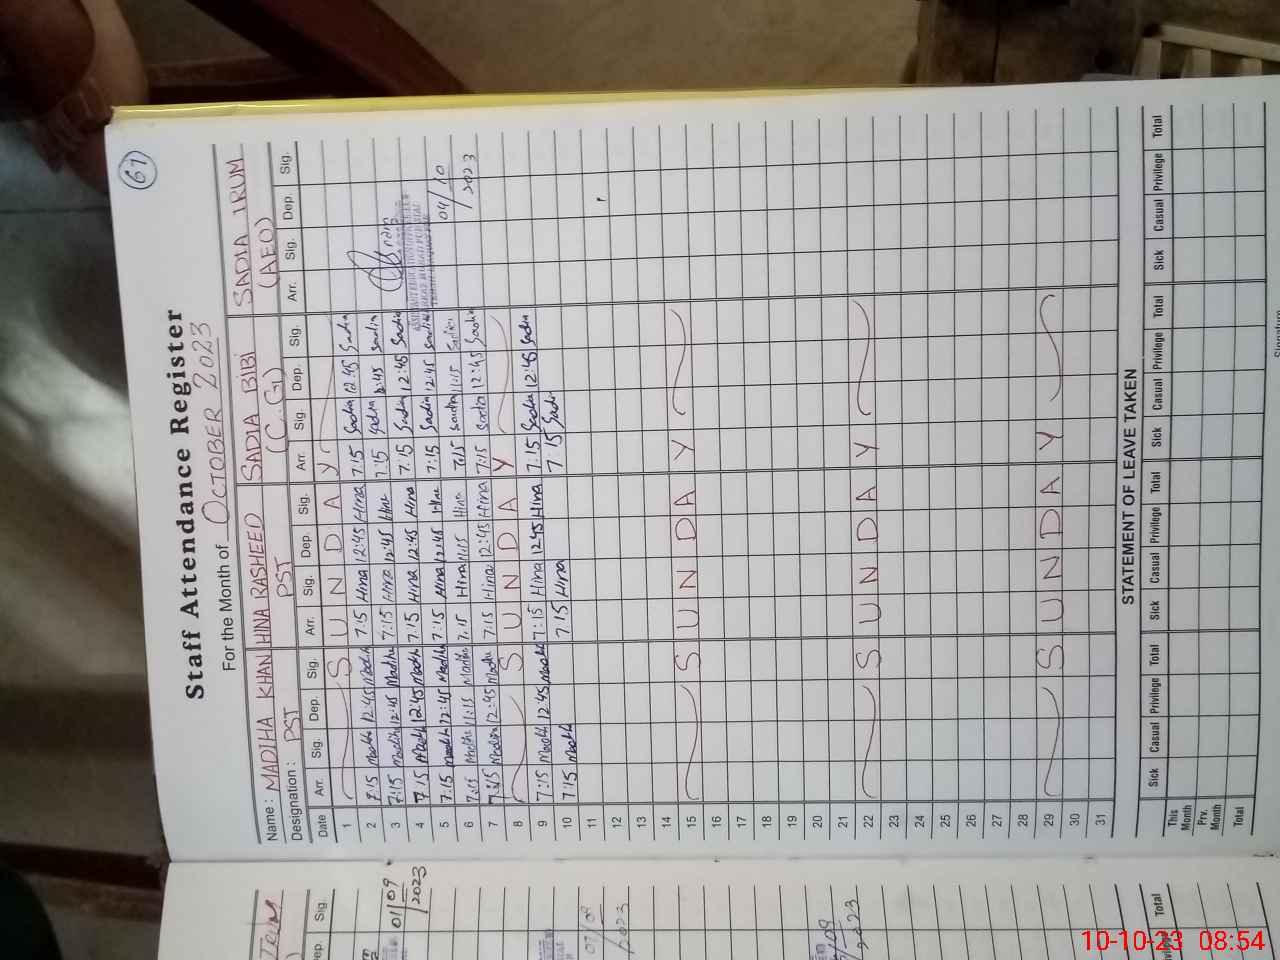 67
Staff Attendance Register
For the Month of OCTOBER 2023
Name: MADIHA KHAN HINA RASHEED SADIA BIBI SADIA IRUM
Designation: PST PST (C.G) (AEO)
Date Arr. Sig. Dep. Sig. Arr. Sig. Dep. Sig. Arr. Sig. Dep. Sig. Arr. Sig. Dep. Sig.
1 S U N D A Y
2 7:15 Madiha 12:45 Madiha 7:15 Hina 12:45 Hina 7:15 Sadia 12:45 Sadia
3 7:15 Madiha 12:45 Madiha 7:15 Hina 12:45 Hina 7:15 Sadia 12:45 Sadia
4 7:15 Madiha 12:45 Madiha 7:15 Hina 12:45 Hina 7:15 Sadia 12:45 Sadia
5 7:15 Madiha 12:45 Madiha 7:15 Hina 12:45 Hina 7:15 Sadia 12:45 Sadia 04/10
6 7:15 Madiha 11:15 Madiha 7:15 Hina 11:15 Hina 7:15 Sadia 11:15 Sadia /2023
7 7:15 Madiha 12:45 Madiha 7:15 Hina 12:45 Hina 7:15 Sadia 12:45 Sadia
8 S U N D A Y
9 7:15 Madiha 12:45 Madiha 7:15 Hina 12:45 Hina 7:15 Sadia 12:45 Sadia
10 7:15 Madiha 7:15 Hina 7:15 Sadia
11
12
13
14
15 S U N D A Y
16
17
18
19
20
21
22 S U N D A Y
23
24
25
26
27
28
29 S U N D A Y
30
31
STATEMENT OF LEAVE TAKEN
Sick Casual Privilege Total Sick Casual Privilege Total Sick Casual Privilege Total Sick Casual Privilege Total
This Month
Prv. Month
Total
Sig.
01/09/2023
/2023
/09/2023
Privilege Total
10-10-23 08:54